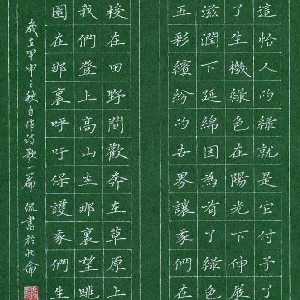 這怡人的綠就是它付予了
了生機綠色在陽光下伸展
滋潤下延綿因為有了綠色
五彩繽紛的世界讓我們在
梭在田野間歡奔在草原上
我們登上高山去那裏望眺
園在那裏呼吁保護我們生
歲在甲申之秋自作詩歌一篇 侃書於北侖